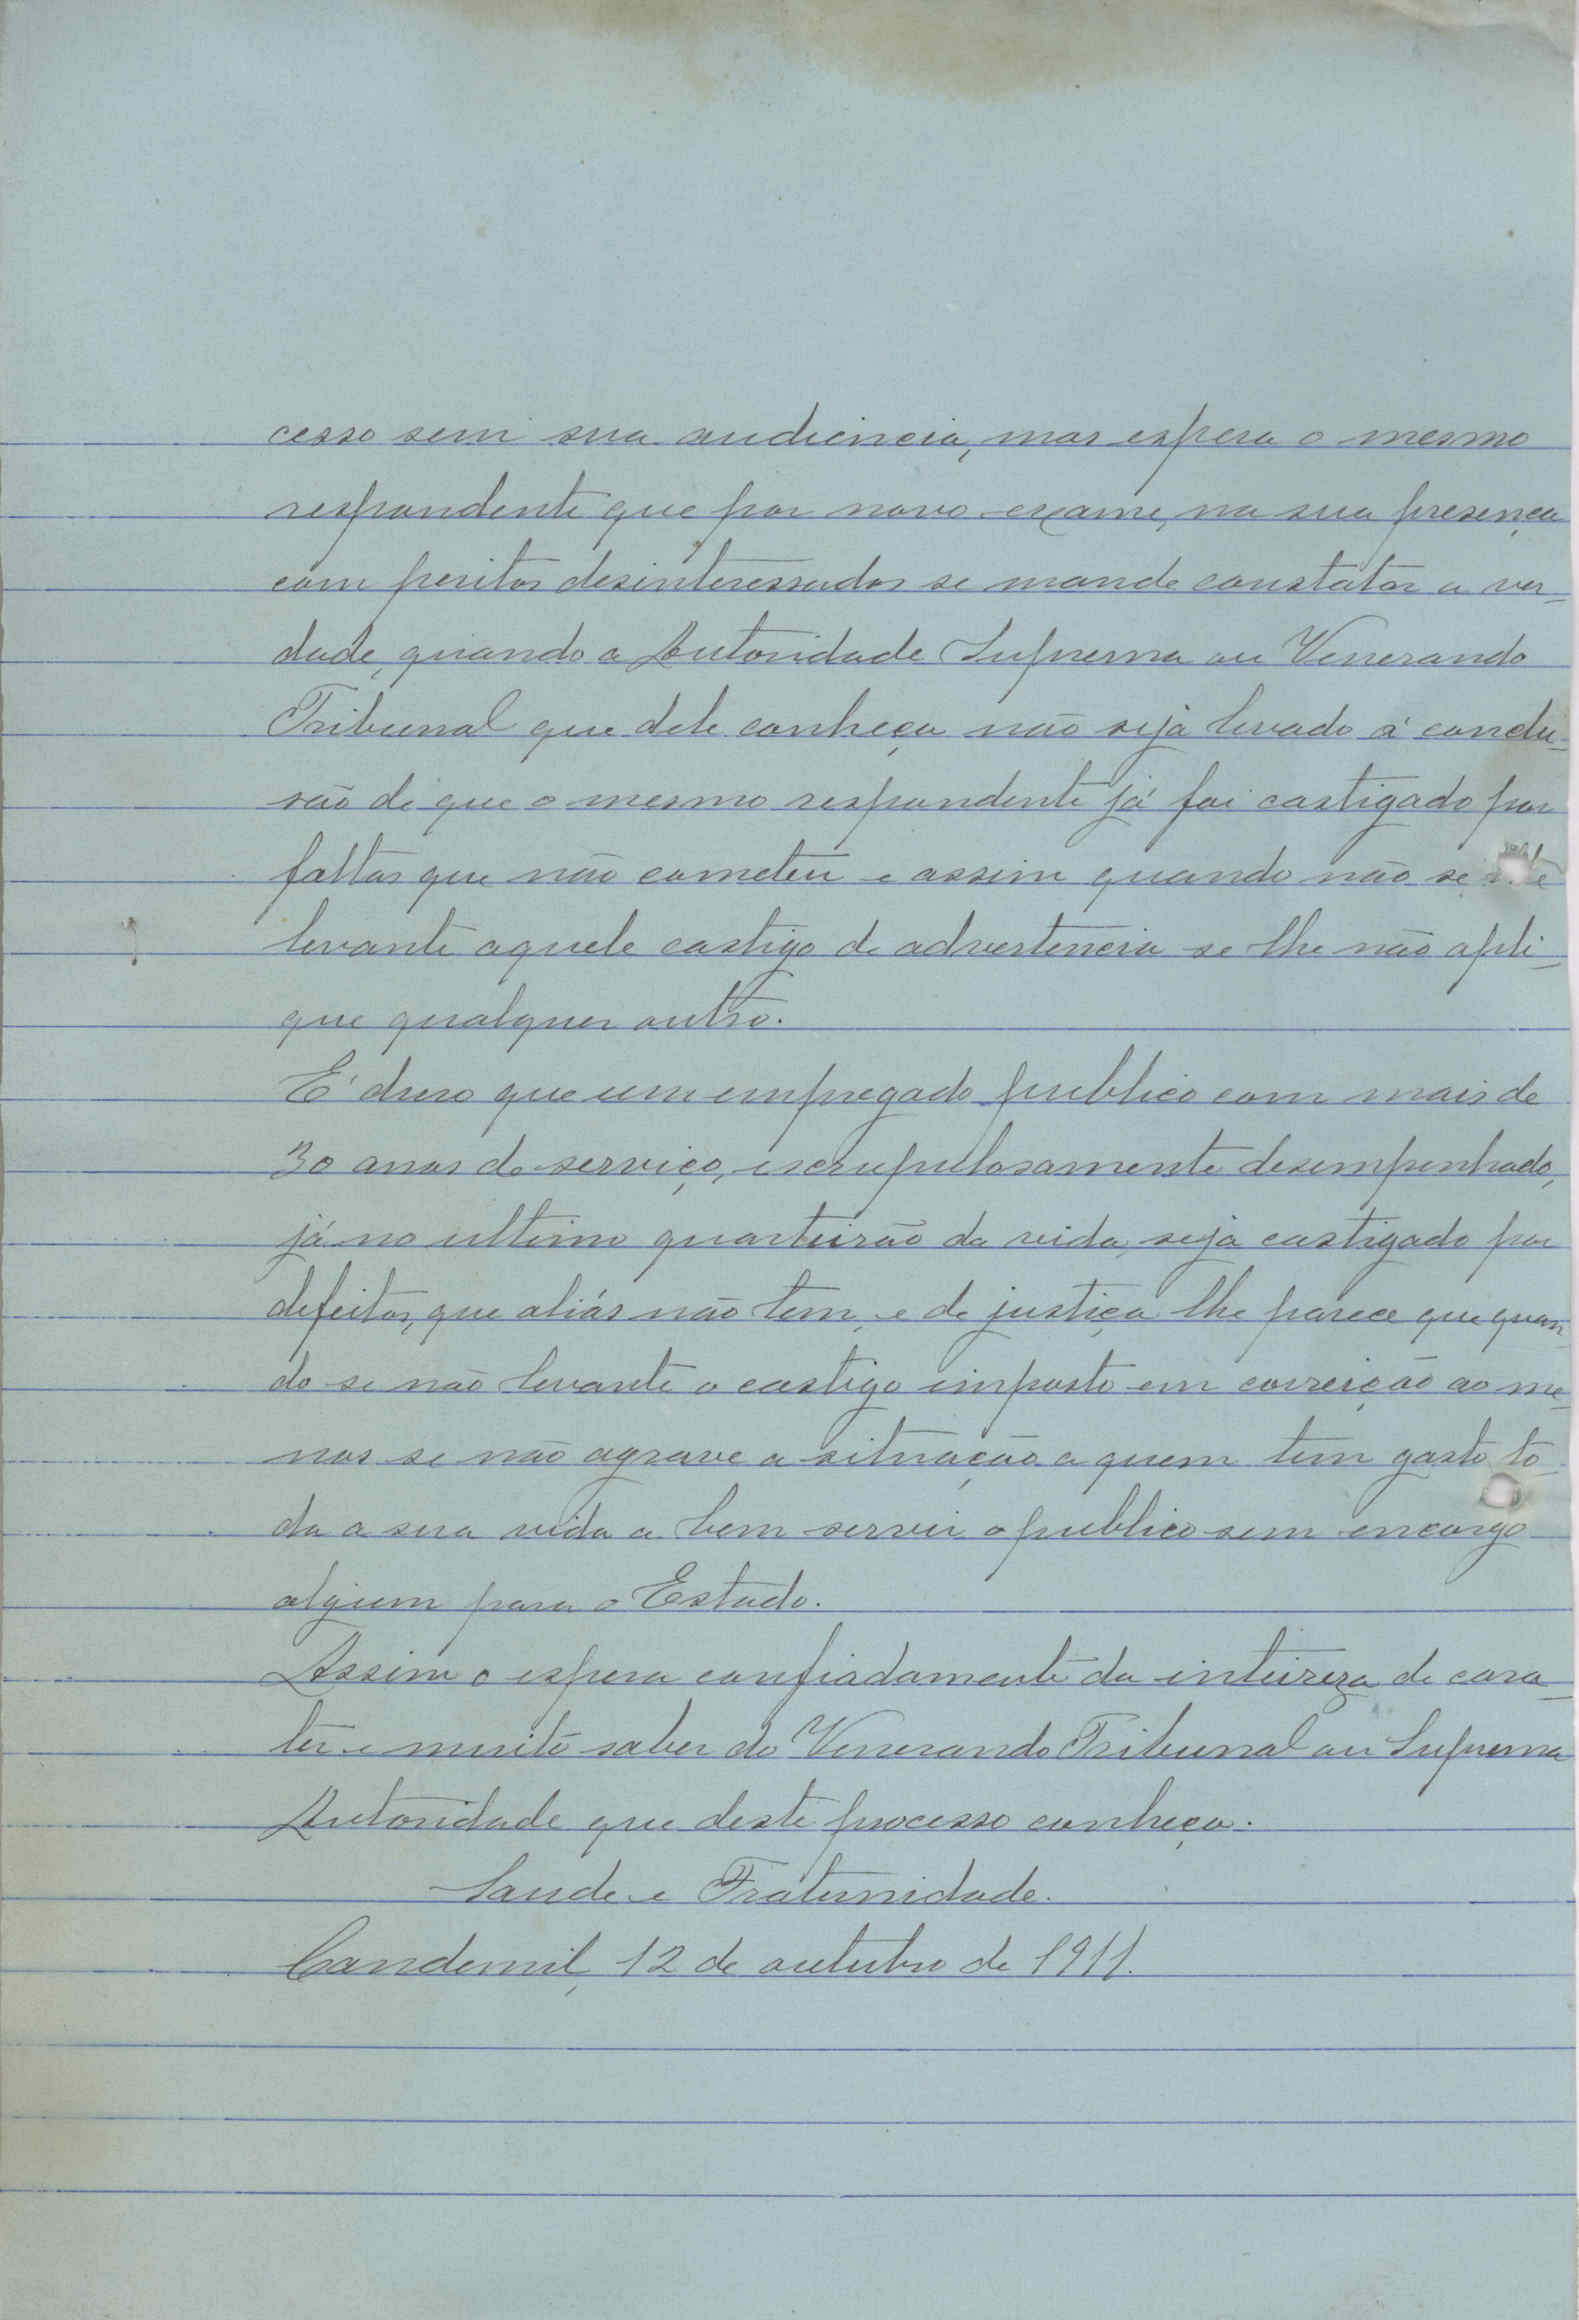 cesso sem sua audiencia, mas espera o mesmo
respondente que por novo exame, na sua presença
com peritos desinteressados se mande constatar a ver-
dade, quando a Autoridade Suprema ou Venerando
Tribunal que dele conheça não seja levado á conclu-
são de que o mesmo respondente já foi castigado por
faltas que não cometeu e assim quando não se
levante aquele castigo de advertencia se lhe não apli-
que qualquer outro.
É duro que um empregado publico com mais de
30 anos de serviço, escrupulosamente desempenhado,
já no ultimo quarteirão da vida, seja castigado por
defeitos, que aliás não tem, e de justiça lhe parece que quan-
do se não levante o castigo imposto em correição ao me-
nos se não agrave a situação a quem tem gasto to-
da a sua vida a bem servir o publico sem encargo
algum para o Estado.
Assim o espera confiadamente da inteireza de cara-
ter e muito saber do Venerando Tribunal ou Suprema
Autoridade que deste processo conheça.
Saude e Fraternidade.
Candemil, 12 de outubro de 1911.